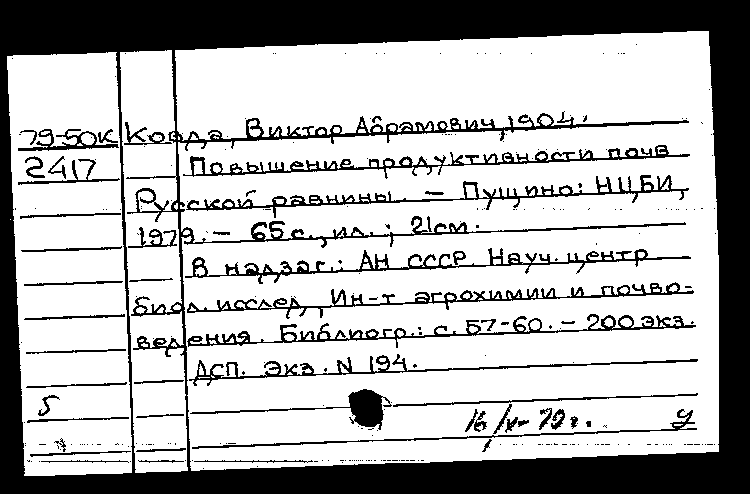 79-50К Ковда, Виктор Абрамович, 1904.
2417 Повышение продуктивности почв
Русской равнины. – Пущино: НЦБИ,
1979. – 65 с., ил. ; 21 см.
В надзаг.: АН СССР. Науч. центр
биол. исслед., Ин-т агрохимии и почво-
ведения. Библиогр.: с. 57-60. – 200 экз.
ДСП. Экз. N 194.
5
16/V-79 г. У